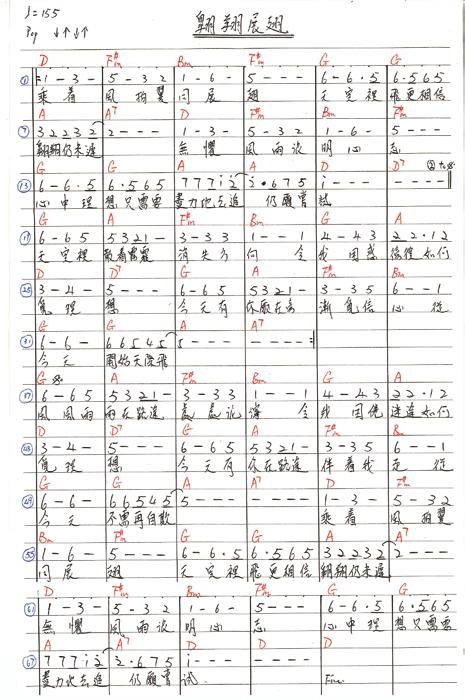 ♩=155
翱翔展翅
Pop ↓↑↓↑
D F#m Bm F#m G G
1 - 3 - 5 - 3 2 1 - 6 - 5 - - - 6 - 6 . 5 6 . 5 6 5
乘着 風拍翼 同展 翅 天空裡 飛更相信
A A D F#m Bm F#m
3 2 2 3 2 2 - - - 1 - 3 - 5 - 3 2 1 - 6 - 5 - - -
翱翔仍未遲 無懼 風雨詠 明心 志
G G A A D D7
⑬ 6 - 6 . 5 6 . 5 6 5 7 7 7 i 2 2 . 6 7 5 i - - - - - - -
心中理 想只需要 盡力地去追 仍願嘗 試
G A F#m Bm G A
6 - 6 5 5 3 2 1 - 3 - 3 3 1 - - 1 4 - 4 3 2 2 . 1 2
天空裡 消失方 向 令 我困惑 如何
D D7 G A F#m Bm
3 - 4 - 5 - - - 6 - 6 5 5 3 2 1 - 3 - 3 5 6 - - 1
覓理 想 今天有 漸覓信 心 從
G G A A7
㉛ 6 - 6 - 6 6 5 4 5 5 - - - - - - -
今天 開始天際飛
G A F#m Bm G A
6 - 6 5 5 3 2 1 - 3 - 3 3 1 - - 1 4 - 4 3 2 2 . 1 2
風風雨 處處 令 我 如何
D D7 G A F#m Bm
3 - 4 - 5 - - - 6 - 6 5 5 3 2 1 - 3 - 3 5 6 - - 1
覓理 想 今天有 伴着我 走 從
G G A A7 D F#m
㊾ 6 - 6 - 6 6 5 4 5 5 - - - - - - - 1 - 3 - 5 - 3 2
今天 不需再自欺 乘着 風拍翼
Bm F#m G G A A7
1 - 6 - 5 - - - 6 - 6 . 5 6 . 5 6 5 3 2 2 3 2 2 - - -
同展 翅 天空裡 飛更相信 翱翔仍未遲
D F#m Bm F#m G G
1 - 3 - 5 - 3 2 1 - 6 - 5 - - - 6 - 6 . 5 6 . 5 6 5
無懼 風雨詠 明心 志 心中理 想只需要
A A7 D D
7 7 7 i 2 2 . 6 7 5 i - - - - - - -
盡力地去追 仍願嘗 試 Fine.